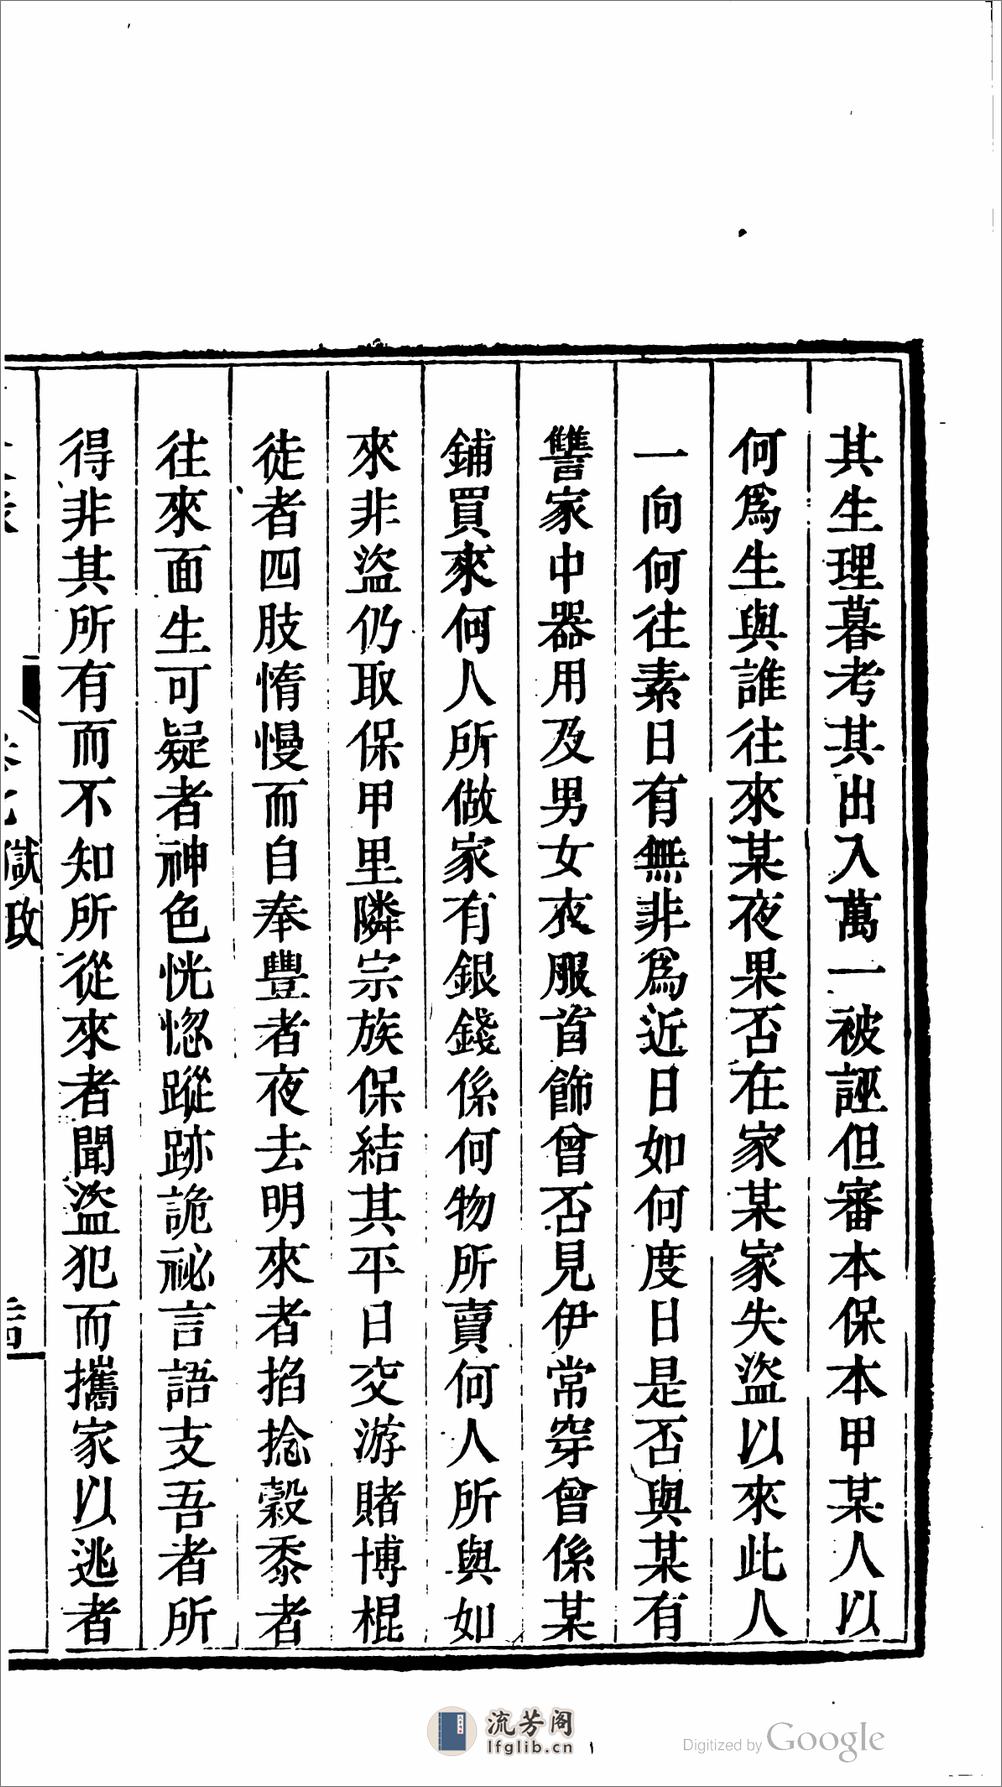 其生理暮考其出入萬一被誣但審本保本甲某人以
何爲生與誰往來某夜果否在家某家失盜以來此人
一向何往素日有無非爲近日如何度日是否與某有
讐家中器用及男女衣服首飾曾否見伊常穿曾係某
鋪買來何人所做家有銀錢係何物所賣何人所與如
來非盜仍取保甲里隣宗族保結其平日交游賭博棍
徒者四肢惰慢而自奉豐者夜去明來者掐捻穀黍者
往來面生可疑者神色恍惚蹤跡詭祕言語支吾者所
得非其所有而不知所從來者聞盜犯而攜家以逃者
獄政
流芳阁
lfglib.cn
Digitized by Google